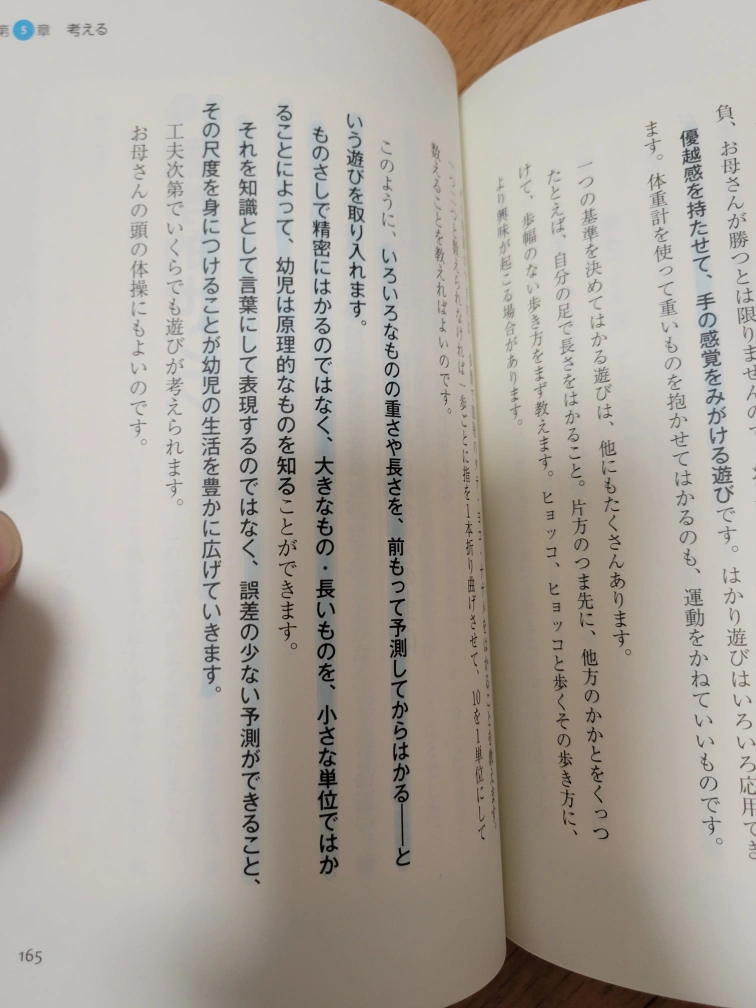 負、お母さんが勝つとは限りませんので、
優越感を持たせて、手の感覚をみがける遊びです。はかり遊びはいろいろ応用でき
ます。体重計を使って重いものを抱かせてはかるのも、運動をかねていいものです。
一つの基準を決めてはかる遊びは、他にもたくさんあります。
たとえば、自分の足で長さをはかること。片方のつま先に、他方のかかとをくっつ
けて、歩幅のない歩き方をまず教えます。ヒョッコ、ヒョッコと歩くその歩き方に、
より興味が起こる場合があります。
をはかることを教えます。
一つ一つと数えられなければ一歩ごとに指を1本折り曲げさせて、10を1単位にして
数えることを教えればよいのです。
第5章 考える
このように、いろいろなものの重さや長さを、前もって予測してからはかる——と
いう遊びを取り入れます。
ものさしで精密にはかるのではなく、大きなもの・長いものを、小さな単位ではか
ることによって、幼児は原理的なものを知ることができます。
それを知識として言葉にして表現するのではなく、誤差の少ない予測ができること、
その尺度を身につけることが幼児の生活を豊かに広げていきます。
工夫次第でいくらでも遊びが考えられます。
お母さんの頭の体操にもよいのです。
165